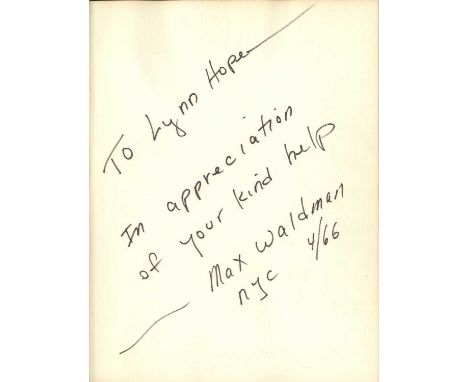 To Lynn Hope
In appreciation
of your kind help
Max Waldman
NYC 4/66